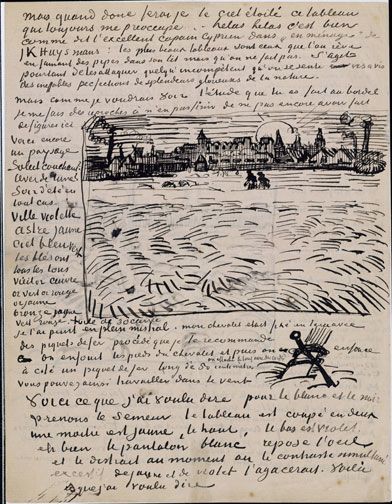 mais quand donc ferai je le ciel étoilé ce tableau
qui toujours me préoccupe.. hélas hélas c'est bien
comme dit l'excellent copain Cyprien dans "en ménage" de
JK Huysmans: les plus beaux tableaux sont ceux que l'on rêve
en fumant des pipes dans son lit mais qu'on ne fait pas. S'agit
pourtant de les attaquer quelqu'incompétent qu'on se sente vis à vis
des ineffables perfections de splendeurs glorieuses de la nature
mais comme je voudrais voir l'étude que tu as fait au bordel
je me fais des reproches à n'en pas finir de ne pas encore avoir fait
de figures ici
Voici encore
un paysage
Soleil couchant?
lever de lune?
Soir d'été en
tout cas.
Ville violette
astre jaune
ciel bleu vert
les blés ont
tous les tons
vieil or cuivre
or vert or rouge
or jaune
bronze jaune
vert rouge toile de 30 carrée
je l'ai peint en plein mistral. mon chevalet était fixé en terre avec
des piquets de fer procédé que je te recommande
on enfonce les pieds du chevalet et puis on enfonce
à côté un piquet de fer long de 50 centimètres
vous pouvez ainsi travailler dans le vent
Voici ce que j'ai voulu dire pour le blanc et le noir
Prenons le Semeur le tableau est coupé en deux
une moitié est jaune, le haut, le bas est violet.
eh bien le pantalon blanc repose l'oeil
et le distrait au moment où le contraste simultané
excessif de jaune et de violet l'agacerait. Voilà
ce que j'ai voulu dire